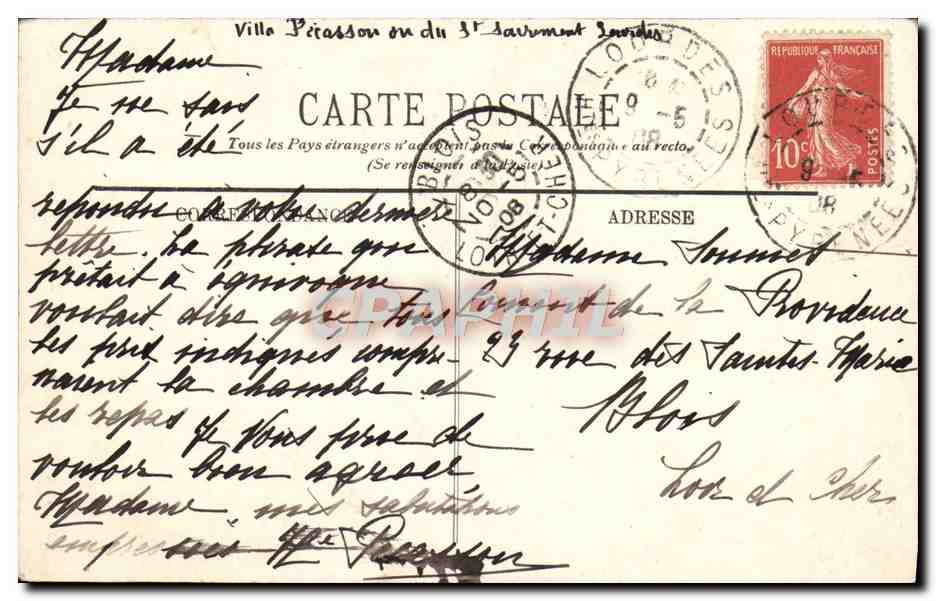 Villa Pécasson ou du St Sacrement Lourdes
Madame
Je ne sais
s'il a été
CARTE POSTALE
Tous les Pays étrangers n'acceptent pas la Correspondance au recto
(Se renseigner à la Poste)
CORRESPONDANCE
repondu à votre dernière
lettre. La phrase qui
prêtait à equivoque
voulait dire que tous
les prix indiqués compre-
naient la chambre et
les repas
Je vous prie de
vouloir bien agréer,
Madame mes salutations
empressées Me Pecasson
ADRESSE
Madame
Couvent de la Providence
23 rue des Saintes-Marie
Blois
Loir et Cher
REPUBLIQUE FRANÇAISE
10c
POSTES
LOURDES
9 -5
08
HTES PYRENEES
BLOIS
08
LOIR-ET-CHER
LOURDES
9 -5
08
HTES PYRENEES
CPAPHIL